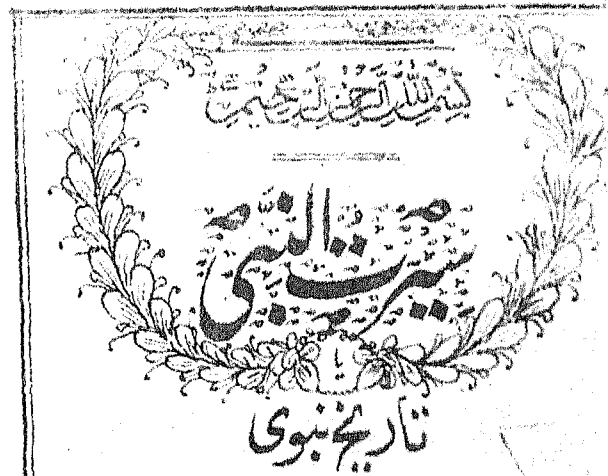 بسم الله الرحمن الرحيم
سیرت النبی
یا
تاریخ نبوی